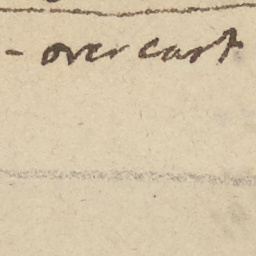 - overcast